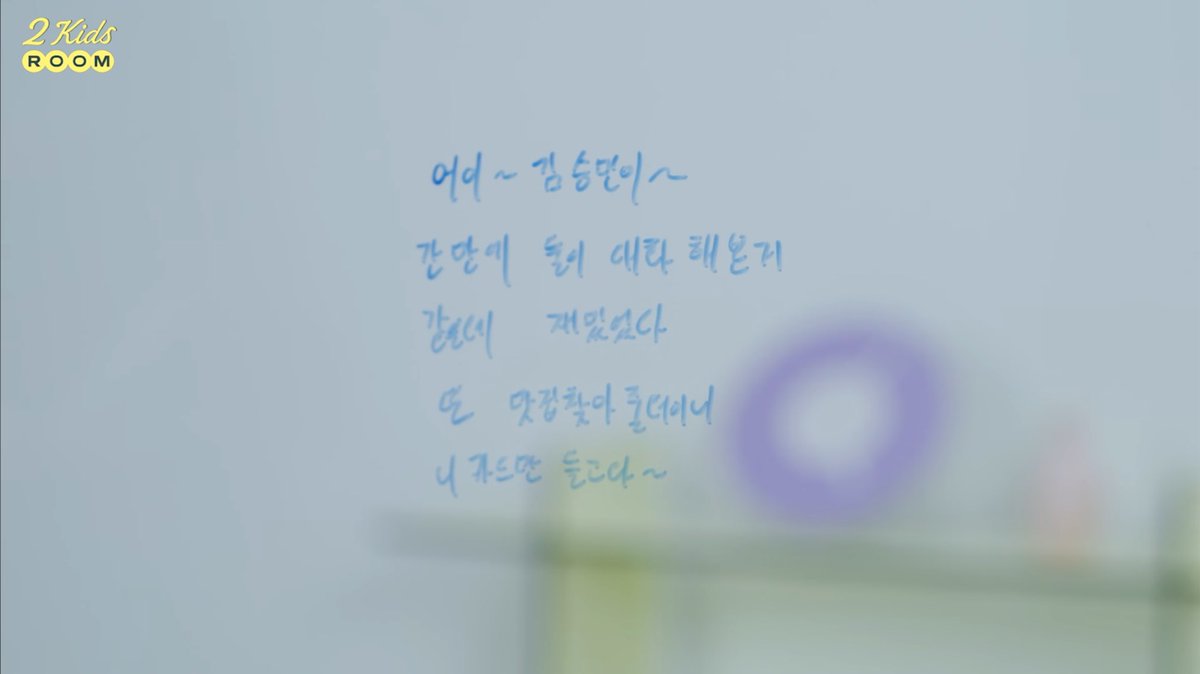 2 Kids
ROOM
어이~ 김승민이~
간만에 둘이 대화 해본거
같은데 재밌었다
또 맛집찾아 둘터이니
니 카드만 들고와~